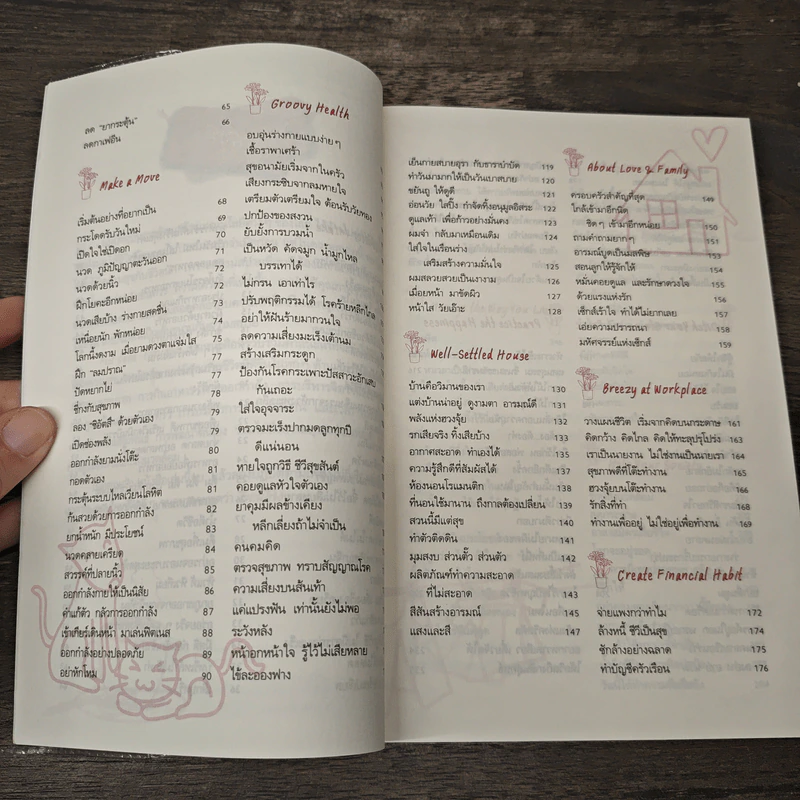 ลด "ยากระตุ้น" 65
ลดกาเฟอีน 66
Make a Move
เริ่มต้นอย่างที่อยากเป็น 68
กระโดดรับวันใหม่ 69
เปิดใจใช่เปิดอก 70
นวด ภูมิปัญญาตะวันออก 71
นวดด้วยนิ้ว 72
ฝึกโยคะอีกหน่อย 72
นวดเสียบ้าง ร่างกายสดชื่น 73
เหนื่อยนัก พักหน่อย 74
โลกนิ้งดงาม เมื่อยามดวงตาแจ่มใส 75
ฝึก "ลมปราณ" 77
ปัดหยากไย่ 77
ชี่กงกับสุขภาพ 78
ลอง "ชิอัตสึ" ด้วยตัวเอง 79
เปิดช่องพลัง 79
ออกกำลังยามนั่งโต๊ะ 80
กอดตัวเอง 81
กระตุ้นระบบไหลเวียนโลหิต 81
ก้นสวยด้วยการออกกำลัง 82
ยกน้ำหนัก มีประโยชน์ 83
นวดคลายเครียด 84
สวรรค์ที่ปลายนิ้ว 85
ออกกำลังกายให้เป็นนิสัย 86
คำแก้ตัว กลัวการออกกำลัง 87
เข้าเกียร์เดินหน้า มาเล่นฟิตเนส 88
ออกกำลังอย่างปลอดภัย 89
อย่าหักโหม 90
Groovy Health
อบอุ่นร่างกายแบบง่าย ๆ
เชื้อราพาเศร้า
สุขอนามัยเริ่มจากในครัว
เสียงกระซิบจากลมหายใจ
เตรียมตัวเตรียมใจ ต้อนรับวัยทอง
ปกป้องของสงวน
ยับยั้งการบวมน้ำ
เป็นหวัด คัดจมูก น้ำมูกไหล
บรรเทาได้
ไม่กรน เอาเท่าไร
ปรับพฤติกรรมได้ โรคร้ายหลีกไกล
อย่าให้ฝันร้ายมากวนใจ
ลดความเสี่ยงมะเร็งเต้านม
สร้างเสริมกระดูก
ป้องกันโรคกระเพาะปัสสาวะอักเสบ
กันเถอะ
ใส่ใจอุจจาระ
ตรวจมะเร็งปากมดลูกทุกปี
ดีแน่นอน
หายใจถูกวิธี ชีวีสุขสันต์
คอยดูแลหัวใจตัวเอง
ยาคุมมีผลข้างเคียง
หลีกเลี่ยงถ้าไม่จำเป็น
คนคมคิด
ตรวจสุขภาพ ทราบสัญญาณโรค
ความเสี่ยงบนส้นเท้า
แค่แปรงฟัน เท่านั้นยังไม่พอ
ระวังหลัง
หน้าอกหน้าใจ รู้ไว้ไม่เสียหลาย
ไข้ละอองฟาง
เย็นกายสบายอุรา กับธาราบำบัด 119
ทำวันมามากให้เป็นวันเบาสบาย 120
ขยันถู ให้ดูดี 121
อ่อนวัย ใสปิ๊ง กำจัดทิ้งอนุมูลอิสระ 122
ดูแลเท้า เพื่อก้าวอย่างมั่นคง 123
ผมจ๋า กลับมาเหมือนเดิม 124
ใส่ใจในเรือนร่าง
เสริมสร้างความมั่นใจ 125
ผมสลวยสวยเป็นเงางาม 126
เมื่อยหน้า มาขัดผิว 127
หน้าใส วัยเอ๊าะ 128
Well-Settled House
บ้านคือวิมานของเรา 130
แต่งบ้านน่าอยู่ ดูงามตา อารมณ์ดี 131
พลังแห่งฮวงจุ้ย 132
รกเสียจริง ทิ้งเสียบ้าง 133
อากาศสะอาด ทำเองได้ 135
ความรู้สึกดีที่สัมผัสได้ 137
ห้องนอนโรแมนติก 138
ที่นอนใช้มานาน ถึงกาลต้องเปลี่ยน 139
สวนนี้มีแต่สุข 140
ทำตัวติดดิน 141
มุมสงบ ส่วนตั๊ว ส่วนตัว 142
ผลิตภัณฑ์ทำความสะอาด
ที่ไม่สะอาด 143
สีสันสร้างอารมณ์ 145
แสงและสี 147
About Love & Family
ครอบครัวสำคัญที่สุด 149
ใกล้เข้ามาอีกนิด
ชิด ๆ เข้ามาอีกหน่อย 150
ถามคำถามยาก ๆ 151
อารมณ์บูดเป็นมลพิษ 153
สอนลูกให้รู้จักให้ 154
หมั่นคอยดูแล และรักษาดวงใจ 155
ด้วยแรงแห่งรัก 156
เซ็กส์เร้าใจ ทำได้ไม่ยากเลย 157
เอ่ยความปรารถนา 158
มหัศจรรย์แห่งเซ็กส์ 159
Breezy at Workplace
วางแผนชีวิต เริ่มจากคิดบนกระดาษ 161
คิดกว้าง คิดไกล คิดให้ทะลุปรุโปร่ง 163
เราเป็นนายงาน ไม่ใช่งานเป็นนายเรา 164
สุขภาพดีที่โต๊ะทำงาน 165
ฮวงจุ้ยบนโต๊ะทำงาน 166
รักสิ่งที่ทำ 168
ทำงานเพื่ออยู่ ไม่ใช่อยู่เพื่อทำงาน 169
Create Financial Habit
จ่ายแพงกว่าทำไม 172
ล้างหนี้ ชีวีเป็นสุข 174
ซักล้างอย่างฉลาด 175
ทำบัญชีครัวเรือน 176